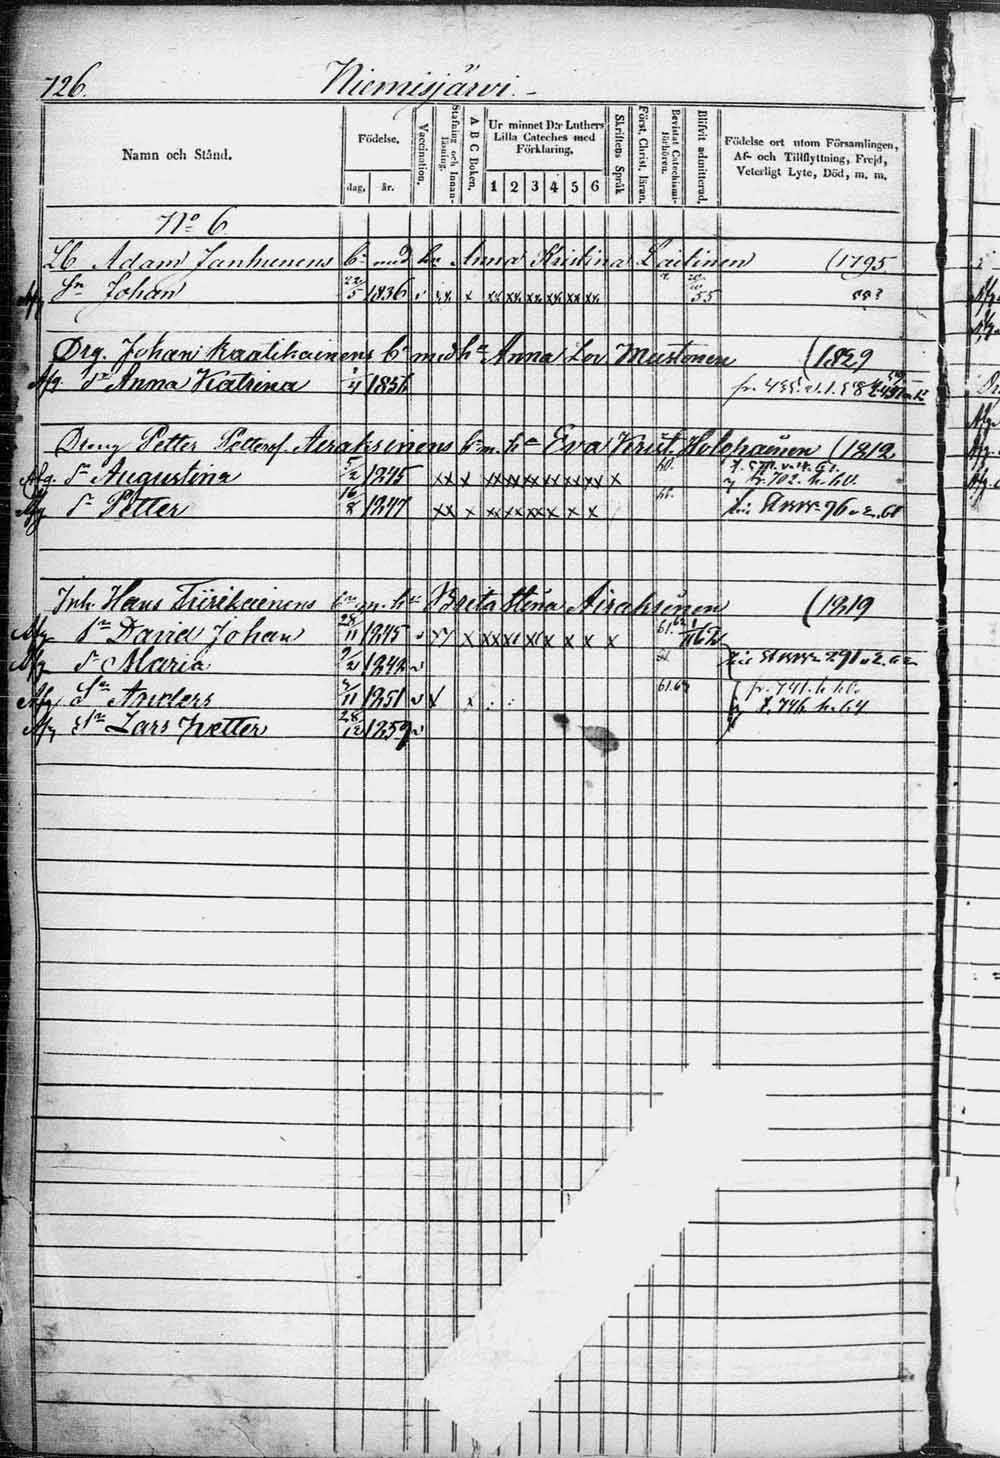 726. Niemisjärvi.
Namn och Stånd.
Födelse.
dag. år.
Vaccination.
Stafning och Innan-läsning.
A B C Boken.
Ur minnet D:r Luthers Lilla Cateches med Förklaring.
1 2 3 4 5 6
Skriftens Språk
Först. Christ. läran.
Bevistat Catechismi-förhören.
Blifvit admitterad.
Födelse ort utom Församlingen, Af- och Tillflyttning, Frejd, Veterligt Lyte, Död, m. m.
No 6
Adam Janhunens bn med hu Anna Kristina Laitinen (1795
Sn Johan 22/5 1836 x x x x x x x 55
Drg. Johan Kaalikainens bn med hu Anna Lov. Mustonen (1829
Afg dr Anna Katrina 1856
Dreng Petter Petterss. Airaksinens bn m. hu Eva Krist. Holopainen (1812
Afg. dr Augustina 5/2 1845 xx x xx xx xx xx xx xx x 60.
Afg Sn Petter 16/8 1847 xx x x x xx x x x
Inh. Hans Tiirikainens bn m. hu Brita Stina Airaksinen (1819
Afg Sn David Johan 28/11 1845 x x x x x x x x 61.62
Afg dr Maria 9/2 1842 291
Afg Sn Anders 11 1851 x 61.63 fr. 741.
Afg Sn Lars Petter 28/12 1859